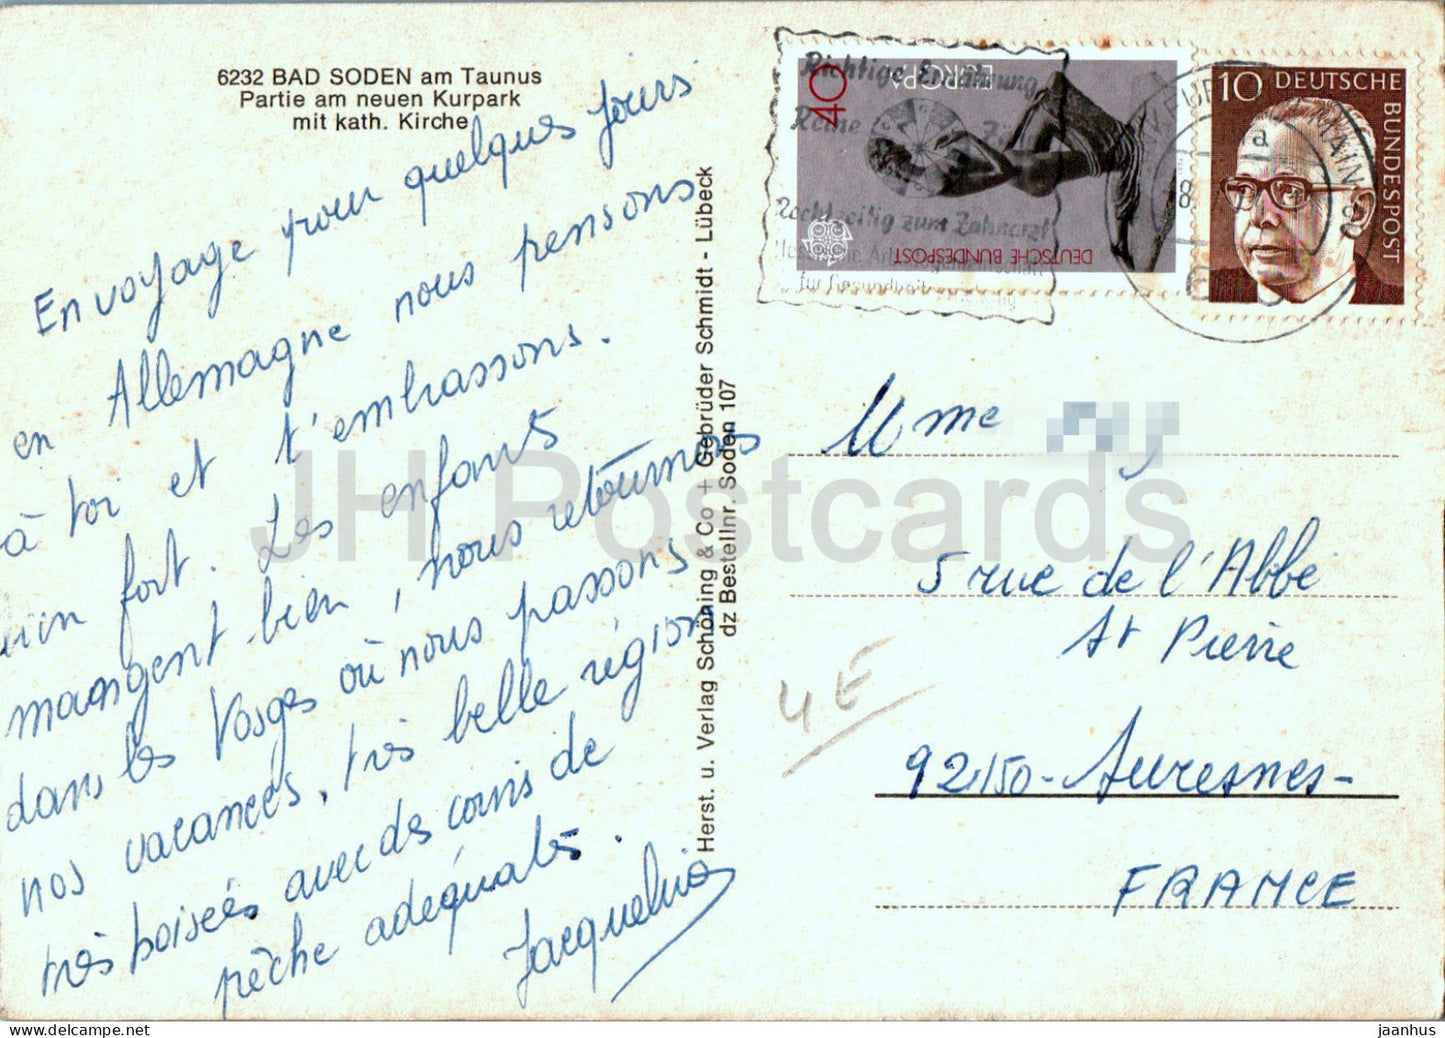 6232 BAD SODEN am Taunus
Partie am neuen Kurpark
mit kath. Kirche
En voyage pour quelques jours
en Allemagne nous pensons
à toi et t'embrassons.
bien fort. Les enfants
mangent bien, nous retournons
dans les Vosges où nous passons
nos vacances, très belle région
très boisées avec des coins de
pêche adéquates.
Jacqueline
Herst. u. Verlag Schöning & Co + Gebrüder Schmidt - Lübeck
dz Bestellnr. Soden 107
Richtige Ernährung
Reine
Rechtzeitig zum Zahnarzt
für Gesundheit
40
EUROPA
DEUTSCHE BUNDESPOST
10 DEUTSCHE
BUNDESPOST
MAIN 80
a
Mme
5 rue de l'Abbé
St Pierre
4E
92150 - Suresnes -
FRANCE
JH Postcards
jaanhus